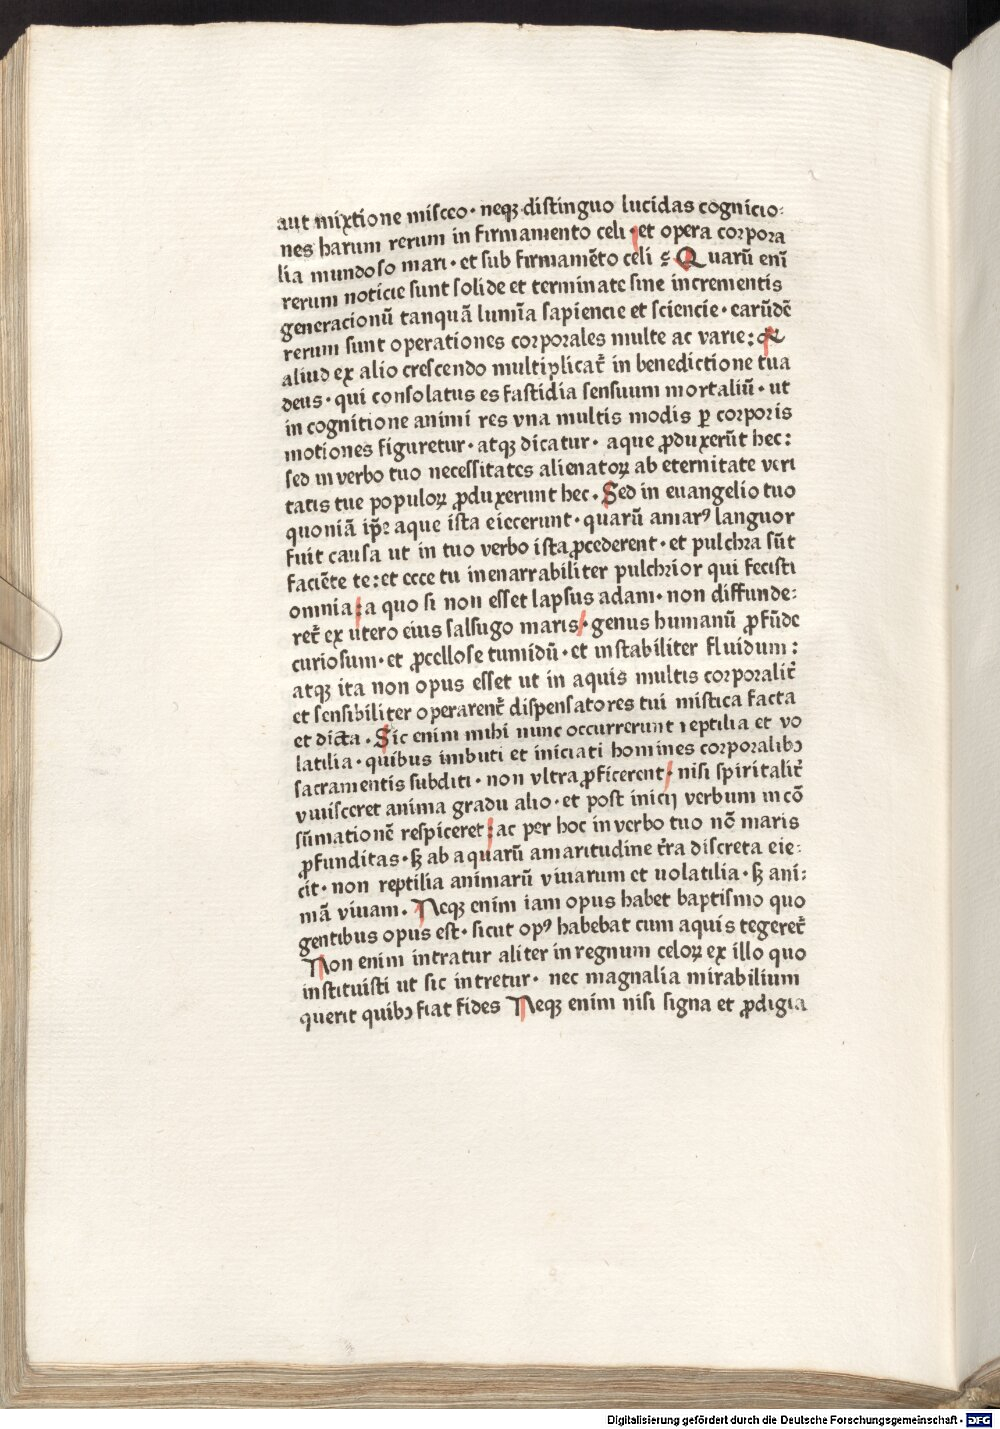 aut mixtione misceo· neqꝫ distinguo lucidas cognicio⸗
nes harum rerum in firmamento celi· et opera corpora
lia mundoso mari· et sub firmamēto celi : Quarū enī
rerum noticie sunt solide et terminate sine incrementis
generacionū tanquā lumīa sapiencie et sciencie· earūdē
rerum sunt operationes corporales multe ac varie: &
aliud ex alio crescendo multiplicat᷑ in benedictione tua
deus· qui consolatus es fastidia sensuum mortaliū· ut
in cognitione animi res vna multis modis ꝑ corporis
motiones figuretur· atqꝫ dicatur· aque ꝓduxerūt hec:
sed in verbo tuo necessitates alienatoꝝ ab eternitate veri
tatis tue populoꝝ ꝓduxerunt hec· Sed in euangelio tuo
quoniā ip̄e aque ista eiecerunt· quarū amarꝰ languor
fuit causa ut in tuo verbo ista ꝓcederent· et pulchra sūt
faciēte te: et ecce tu inenarrabiliter pulchrior qui fecisti
omnia: a quo si non esset lapsus adam· non diffunde⸗
ret᷑ ex utero eius salsugo maris· genus humanū ꝓfūde
curiosum· et ꝓcellose tumidū· et instabiliter fluidum:
atqꝫ ita non opus esset ut in aquis multis corporalit᷑
et sensibiliter operarent᷑ dispensatores tui mistica facta
et dicta· Sic enim mihi nunc occurrerunt reptilia et vo
latilia· quibus imbuti et iniciati homines corporalibꝫ
sacramentis subditi· non vltra ꝓficerent· nisi spiritalit᷑
viuisceret anima gradu alio· et post inicij verbum in cō
sūmationē respiceret: ac per hoc in verbo tuo nō maris
ꝓfunditas· sꝫ ab aquarū amaritudine t᷑ra discreta eie⸗
cit· non reptilia animarū viuarum et uolatilia· sꝫ ani⸗
mā viuam· Neqꝫ enim iam opus habet baptismo quo
gentibus opus est· sicut opꝰ habebat cum aquis tegeret᷑
Non enim intratur aliter in regnum celoꝝ ex illo quo
instituisti ut sic intretur· nec magnalia mirabilium
querit quibꝫ fiat fides Neqꝫ enim nisi signa et ꝓdigia
Digitalisierung gefördert durch die Deutsche Forschungsgemeinschaft - DFG